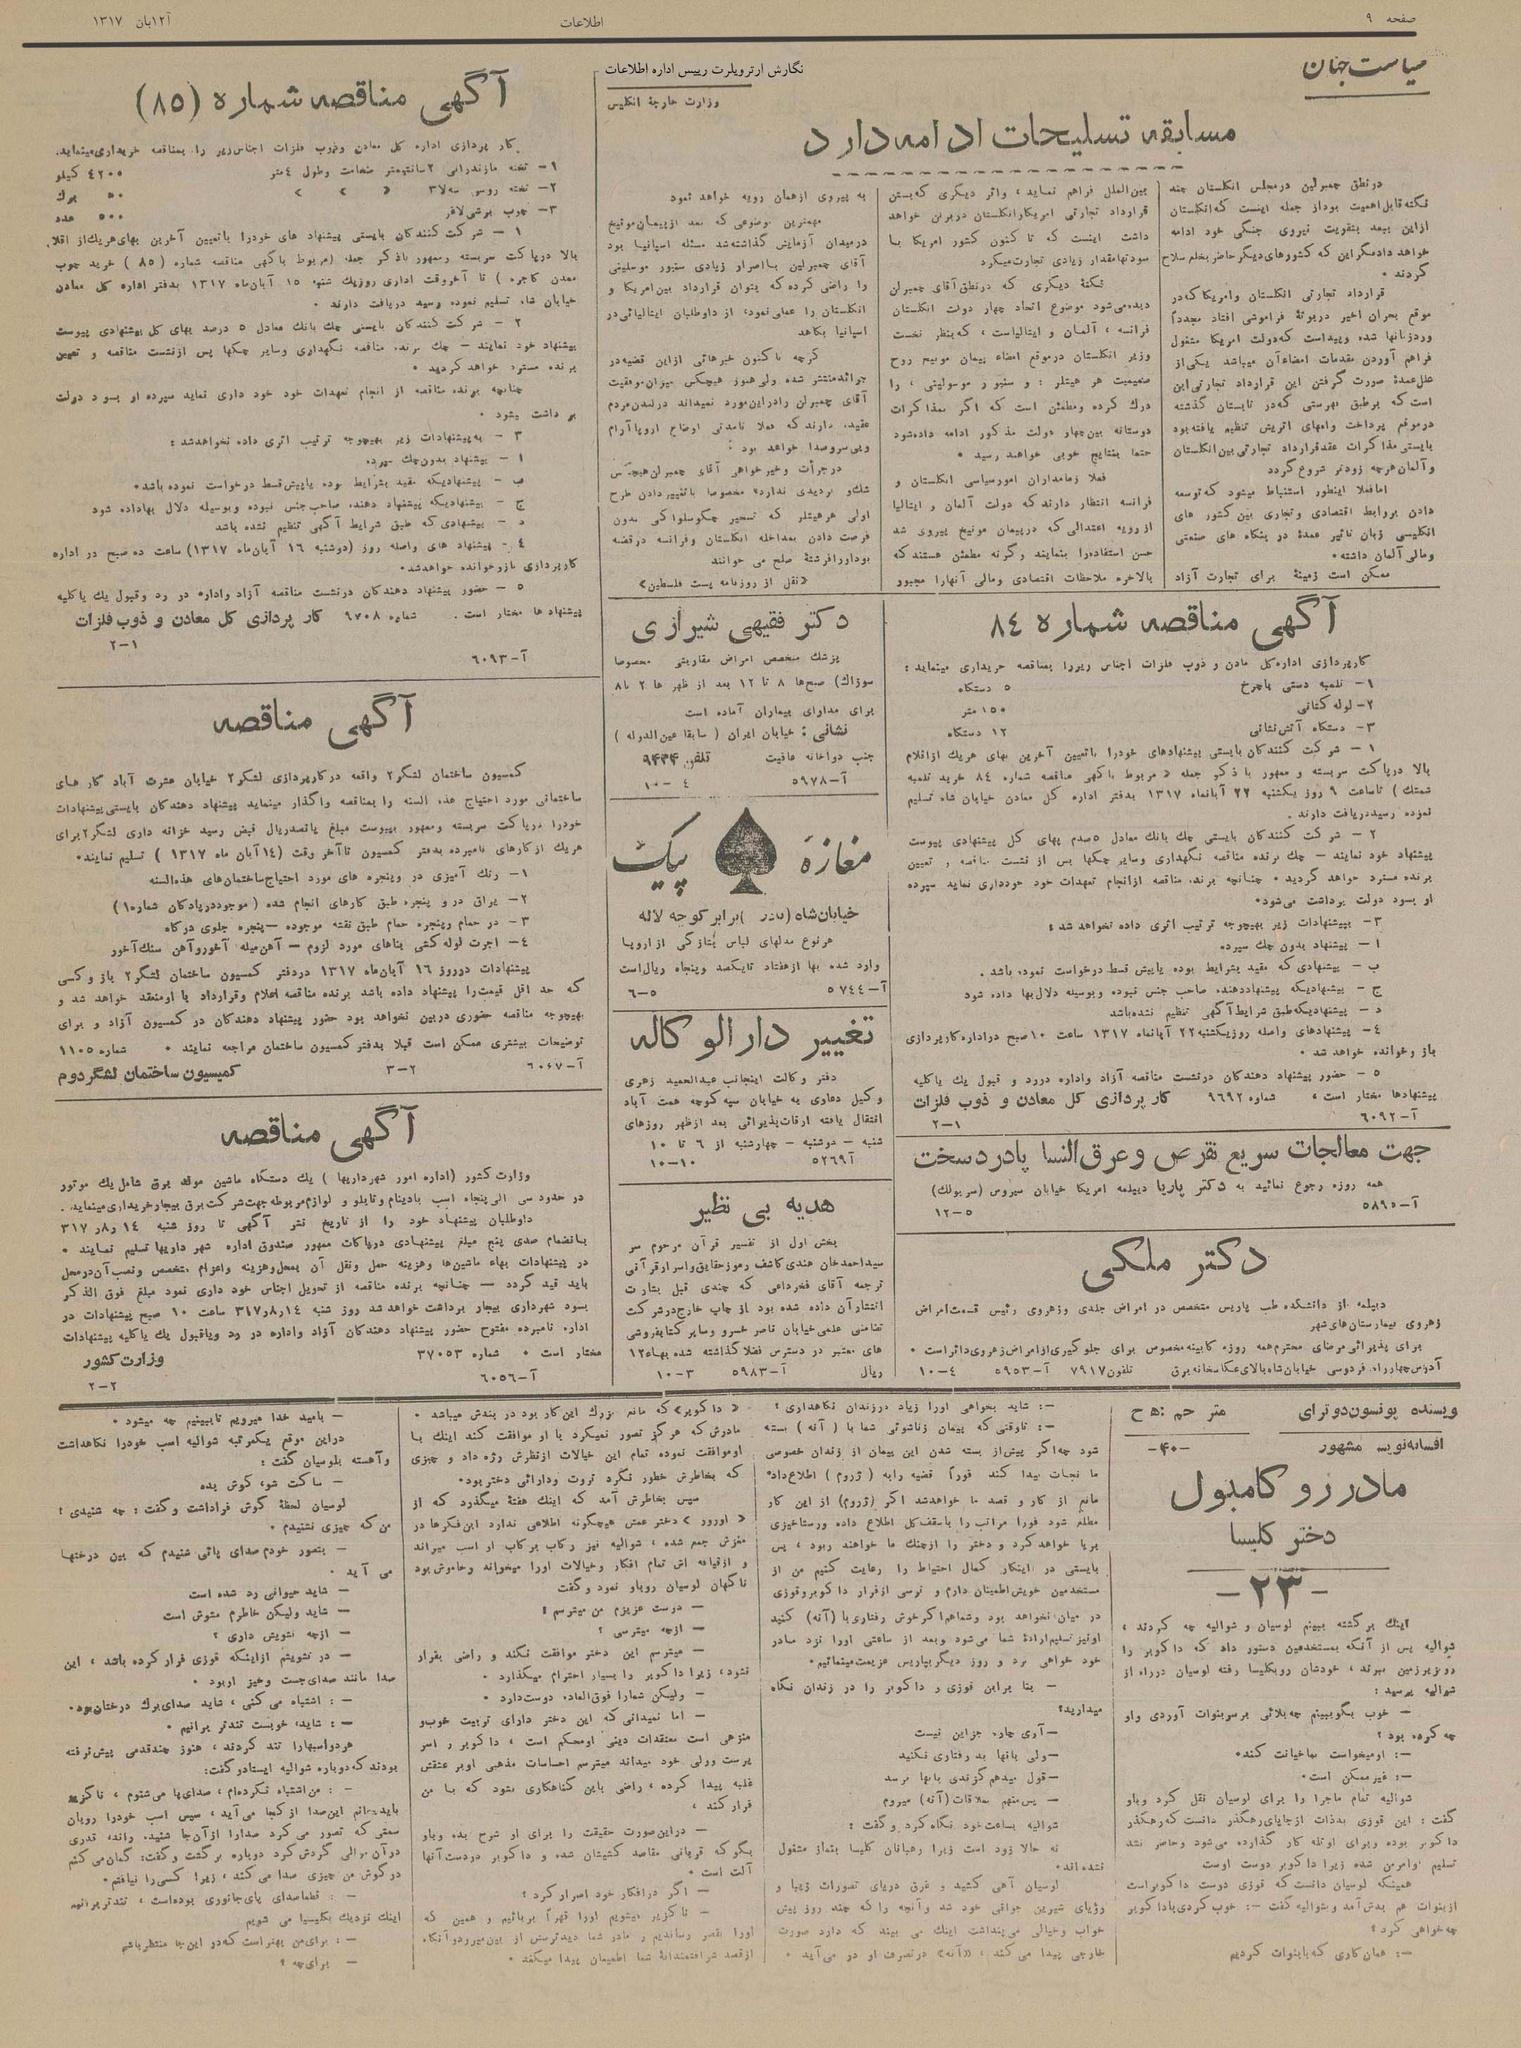 صفحه ۹
اطلاعات
۱۲ آبان ۱۳۱۷
سیاست جهان
نگارش ارترویلرت رییس اداره اطلاعات
وزارت خارجهٔ انگلیس
مسابقه تسلیحات ادامه دارد
در نطق چمبرلین در مجلس انگلستان چند
نکته قابل اهمیت بود از جمله اینست که انگلستان
از این ببعد بتقویت نیروی جنگی خود ادامه
خواهد داد مگر این که کشورهای دیگر حاضر بخلع سلاح
گردند •
قرارداد تجارتی انگلستان و امریکا که در
موقع بحران اخیر در بوتهٔ فراموشی افتاد مجدداً
ورد زبانها شده و پیداست که دولت امریکا مشغول
فراهم آوردن مقدمات امضاء آن میباشد یکی از
علل عمدهٔ صورت گرفتن این قرارداد تجارتی این
است که بر طبق فهرستی که در تابستان گذشته
در موقع پرداخت وامهای اتریش تنظیم یافته بود
بایستی مذاکرات عقد قرارداد تجارتی بین انگلستان
و آلمان هر چه زودتر شروع گردد
اما فعلا اینطور استنباط میشود که توسعه
دادن بروابط اقتصادی و تجاری بین کشور های
انگلیسی زبان تاثیر عمدهٔ در بنگاه های صنعتی
و مالی آلمان داشته •
ممکن است زمینهٔ برای تجارت آزاد
بین‌الملل فراهم نماید ، واثر دیگری که بستن
قرارداد تجارتی امریکا و انگلستان در بر لن خواهد
داشت اینست که تا کنون کشور امریکا با
سودتها مقدار زیادی تجارت میکرد
نکتهٔ دیگری که در نطق آقای چمبرلن
دیده می‌شود موضوع اتحاد چهار دولت انگلستان
فرانسه ، آلمان و ایتالیاست ، که بنظر نخست
وزیر انگلستان در موقع امضاء پیمان مونیخ روح
صمیمیت هر هیتلر : و سنیور موسولینی ، را
درک کرده و مطمئن است که اگر مذاکرات
دوستانه بین چهار دولت مذکور ادامه داده شود
حتما بنتایج خوبی خواهند رسید •
فعلا زمامداران امور سیاسی انگلستان و
فرانسه انتظار دارند که دولت آلمان و ایتالیا
از رویه اعتدالی که در پیمان مونیخ پیروی شد
حسن استفاده را بنمایند و گرنه مطمئن هستند که
بالاخره ملاحظات اقتصادی و مالی آنها را مجبور
به پیروی از همان رویه خواهد نمود
مهمترین موضوعی که بعد از پیمان مونیخ
در میدان آزمایش گذاشته شد مسئله اسپانیا بود
آقای چمبرلین با اصرار زیادی سنیور موسلینی
را راضی کرده که بتوان قرارداد بین امریکا و
انگلستان را عملی نمود ، از داوطلبان ایتالیائی در
اسپانیا بکاهد
گرچه تا کنون خبرهائی از این قضیه در
جرائد منتشر شده ولی هنوز هیچکس میزان موفقیت
آقای چمبرلن را در این مورد نمیداند در لندن مردم
عقیده دارند که فعلا تا مدتی اوضاع اروپا آرام
و بی سر و صدا خواهد بود :
در جرأت و خیر خواهی آقای چمبرلن هیچکس
شک و تردیدی ندارد مخصوصا با تغییر دادن طرح
اولی هر هیتلر که تسخیر چکوسلواکی بدون
فرصت دادن بمداخله انگلستان و فرانسه در قضه
بود او را فرشتهٔ صلح می خوانند
«نقل از روزنامه پست فلسطین»
آگهی مناقصه شماره (۸۵)
کار پردازی اداره کل معادن و ذوب فلزات اجناس زیر را بمناقصه خریداری مینماید.
۱- تخته مازندرانی ۲ سانتیمتر ضخامت وطول ۴ متر ۴۲۰۰ کیلو
۲- تخته روسی سه لا ۳ « » » ۵۰ برک
۳- چوب برشی لافر ۵۰۰ عدد
۱ - شرکت کنندگان بایستی پیشنهاد های خود را با تعیین آخرین بهای هر یک از اقلام
بالا در پاکت سربسته و ممهور با ذکر جمله (مربوط با گهی مناقصه شماره (۸۵) خرید چوب
معدن کاجره ) تا آخر وقت اداری روز یک شنبه ۱۵ آبان ماه ۱۳۱۷ بدفتر اداره کل معادن
خیابان شاه تسلیم نموده رسید دریافت دارند •
۲ - شرکت کنندگان بایستی چک بانک معادل ۵ درصد بهای کل پیشنهادی پیوست
پیشنهاد خود نمایند - چک برنده مناقصه نگهداری وسایر چکها پس از نشست مناقصه و تعیین
برنده مسترد خواهد گردید •
چنانچه برنده مناقصه از انجام تعهدات خود خود داری نماید سپرده او بسود دولت
بر داشت بشود •
۳ - به پیشنهادات زیر بهیچوجه ترتیب اثری داده نخواهد شد :
ا - پیشنهاد بدون چک سپرده
ب - پیشنهادیکه مقید بشرایط بوده یا پیش قسط درخواست نموده باشد •
ج - پیشنهادیکه پیشنهاد دهنده صاحب جنس نبوده و بوسیله دلال بها داده شود
د - پیشنهادی که طبق شرایط آگهی تنظیم نشده باشد
۴ - پیشنهاد های واصله روز (دوشنبه ۱۶ آبان ماه ۱۳۱۷) ساعت ده صبح در اداره
کار پردازی باز و خوانده خواهد شد •
۵ - حضور پیشنهاد دهندگان در نشست مناقصه آزاد و اداره در رد و قبول یک یا کلیه
پیشنهاد ها مختار است . شماره ۹۷۰۸ کار پردازی کل معادن و ذوب فلزات
آ-۶۰۹۳ ۱-۲
آگهی مناقصه
کمیسیون ساختمان لشگر ۲ واقعه در کار پردازی لشگر ۲ خیابان عشرت آباد کار های
ساختمانی مورد احتیاج هذه السنه را بمناقصه واگذار مینماید پیشنهاد دهندکان بایستی پیشنهادات
خود را در پاکت سربسته و ممهور بپیوست مبلغ پانصد ریال قبض رسید خزانه داری لشگر ۲ برای
هر یک از کار های نامبرده بدفتر کمیسیون تا آخر وقت (۱۴ آبان ماه ۱۳۱۷ ) تسلیم نمایند •
۱- رنک آمیزی در و پنجره های مورد احتیاج ساختمان های هذه السنه
۲- یراق در و پنجره طبق کارهای انجام شده ( موجود در پادکان شماره ۱ )
۳- در حمام و پنجره حمام طبق نقشه موجوده - پنجره جلوی درگاه
۴- اجرت لوله کشی بناهای مورد لزوم - آهن میله آخور و آهن سنک آخور
پیشنهادات در روز ۱۶ آبان ماه ۱۳۱۷ در دفتر کمیسیون ساختمان لشگر ۲ باز و کسی
که حد اقل قیمت را پیشنهاد داده باشد برنده مناقصه اعلام و قرارداد با او منعقد خواهد شد و
بهیچوجه مناقصه حضوری در بین نخواهد بود حضور پیشنهاد دهندکان در کمیسیون آزاد و برای
توضیحات بیشتری ممکن است قبلا بدفتر کمیسیون ساختمان مراجعه نمایند • شماره ۱۱۰۵
آ-۶۰۶۷ ۲-۳ کمیسیون ساختمان لشگر دوم
آگهی مناقصه
وزارت کشور (اداره امور شهرداریها ) یک دستگاه ماشین مولد برق شامل یک موتور
در حدود سی الی پنجاه اسب بادینام و تابلو و لوازم مربوطه جهت شرکت برق بیجار خریداری مینماید .
داوطلبان پیشنهاد خود را از تاریخ نشر آگهی تا روز شنبه ۱۴ ر۸ر ۳۱۷
بانضمام صدی پنج مبلغ پیشنهادی در پاکات ممهور صندوق اداره شهر داریها تسلیم نمایند •
در پیشنهادات بهاء ماشین‌ها و هزینه حمل ونقل آن بمحل وهزینه واعزام متخصص و نصب آن در محل
باید قید گردد - چنانچه برنده مناقصه از تحویل اجناس خود داری نمود مبلغ فوق الذکر
بسود شهرداری بیجار برداشت خواهد شد روز شنبه ۱۴ر۸ر۳۱۷ ساعت ۱۰ صبح پیشنهادات در
اداره نامبرده مفتوح حضور پیشنهاد دهندگان آزاد و اداره در رد و یا قبول یک یا کلیه پیشنهادات
مختار است • شماره ۳۷۰۵۳ وزارت کشور
آ-۶۰۵۶ ۲-۲
دکتر فقیهی شیرازی
پزشک متخصص امراض مقاربتی مخصوصا
سوزاک) صبح‌ها ۸ تا ۱۲ بعد از ظهر ها ۲ تا ۸
برای مداوای بیماران آماده است
نشانی : خیابان ایران ( سابقا عین الدوله )
جنب دواخانه عافیت تلفن ۹۴۳۴
آ-۵۹۷۸ ۴-۱۰
مغازه پیک
خیابان شاه (نادر) برابر کوچه لاله
هر نوع مدلهای لباس بتازگی از اروپا
وارد شده بها از هفتاد تا یکصد و پنجاه ریال است
آ-۵۷۴۴ ۵-۶
تغییر دارالوکاله
دفتر وکالت اینجانب عبدالحمید زهری
وکیل دعاوی به خیابان سپه کوچه همت آباد
انتقال یافته اوقات پذیرائی بعد از ظهر روزهای
شنبه - دوشنبه - چهارشنبه از ۶ تا ۱۰
آ ۵۲۶۹ ۱۰-۱۰
هدیه بی نظیر
بخش اول از تفسیر قرآن مرحوم سر
سید احمد خان هندی کاشف رموز حقایق و اسرار قرآنی
ترجمه آقای فخر داعی که چندی قبل بشارت
انتشار آن داده شده بود از چاپ خارج در شرکت
تضامنی علمی خیابان ناصر خسرو و سایر کتابفروشی
های معتبر در دسترس فضلا گذاشته شده بهاء ۱۲
ریال آ-۵۹۸۳ ۳-۱۰
آگهی مناقصه شماره ۸۴
کارپردازی اداره کل معادن و ذوب فلزات اجناس زیر را بمناقصه خریداری مینماید :
۱- تلمبه دستی با چرخ ۵ دستگاه
۲- لوله کتانی ۱۵۰ متر
۳- دستگاه آتش نشانی ۱۲ دستگاه
۱ - شرکت کنندگان بایستی پیشنهادهای خود را باتعیین آخرین بهای هر یک از اقلام
بالا در پاکت سربسته و ممهور با ذکر جمله « مربوط باگهی مناقصه شماره ۸۴ خرید تلمبه
شمشک ) تا ساعت ۹ روز یکشنبه ۲۲ آبانماه ۱۳۱۷ بدفتر اداره کل معادن خیابان شاه تسلیم
نموده رسید دریافت دارند .
۲ - شرکت کنندگان بایستی چک بانک معادل ۵ صدم بهای کل پیشنهادی پیوست
پیشنهاد خود نمایند - چک برنده مناقصه نگهداری وسایر چکها پس از نشست مناقصه و تعیین
برنده مسترد خواهد گردید • چنانچه برنده مناقصه از انجام تعهدات خود خودداری نماید سپرده
او بسود دولت برداشت می‌شود •
۳- بپیشنهادات زیر بهیچوجه ترتیب اثری داده نخواهد شد :
ا - پیشنهاد بدون چک سپرده
ب - پیشنهادی که مقید بشرایط بوده یا پیش قسط درخواست نموده باشد .
ج - پیشنهادیکه پیشنهاد دهنده صاحب جنس نبوده و بوسیله دلال بها داده شود
د - پیشنهادیکه طبق شرایط آگهی تنظیم نشده باشد
۴- پیشنهادهای واصله روز یکشنبه ۲۲ آبانماه ۱۳۱۷ ساعت ۱۰ صبح در اداره کار پردازی
باز و خوانده خواهد شد •
۵ - حضور پیشنهاد دهندگان در نشست مناقصه آزاد و اداره در رد و قبول یک یا کلیه
پیشنهادها مختار است ، شماره ۹۶۹۲ کار پردازی کل معادن و ذوب فلزات
آ-۶۰۹۲ ۱-۲
جهت معالجات سریع نقرص و عرق النسا پادرد سخت
همه روزه رجوع نمائید به دکتر پاریا دیپلمه امریکا خیابان سیروس (سرپولک)
آ-۵۸۹۵ ۵-۱۲
دکتر ملکی
دیپلمه از دانشکده طب پاریس متخصص در امراض جلدی وزهروی رئیس قسمت امراض
زهروی بیمارستان های شهر
برای پذیرائی مرضای محترم همه روزه کابینه مخصوص برای جلوگیری از امراض زهروی دائر است •
آدرس چهار راه فردوسی خیابان شاه بالای عکاسخانه برق تلفون ۷۹۱۷ آ-۵۹۵۳ ۴-۱۰
نویسنده پونسون دوترای
افسانه نویس مشهور
مترجم : ه ح
-۴۰-
مادر زو کامبول
دختر کلیسا
-۲۳-
اینک برگشته ببینم لوسیان و شوالیه چه کردند ،
شوالیه پس از آنکه بمستخدمین دستور داد که داکوبر را
روبزیر زمین ببرند ، خودشان روبکلیسا رفته لوسیان در راه از
شوالیه پرسید :
- خوب بگو ببینم چه بلائی بر سر بنوات آوردی و او
چه کرده بود ؟
- : او میخواست بما خیانت کند •
- : غیر ممکن است •
شوالیه تمام ماجرا را برای لوسیان نقل کرد و باو
گفت : این قوزی بدذات از جاپای رهگذر دانست که رهگذر
داکوبر بوده و برای او تله کار گذارده می‌شود وحاضر نشد
تسلیم اوامر من شده زیرا داکوبر دوست اوست
همینکه لوسیان دانست که قوزی دوست داکوبر است
از بنوات هم بدش آمد و بشوالیه گفت - : خوب کردی با داکوبر
چه خواهی کرد ؟
- : همان کاری که با بنوات کردیم
- : شاید بخواهی او را زیاد در زندان نگاهداری ؟
- : تا وقتی که پیمان زناشوئی شما با ( آنه ) بسته
شود چه اگر پیش از بسته شدن این پیمان از زندان خصوصی
ما نجات پیدا کند فوراً قضیه را به ( ژروم ) اطلاع داد •
مانع از کار و قصد ما خواهد شد اگر (ژروم) از این کار
مطلع شود فورا مراتب را باسقف کل اطلاع داده ورستاخیزی
برپا خواهد کرد و دختر را از چنک ما خواهند ربود ، پس
بایستی در اینکار کمال احتیاط را رعایت کنیم من از
مستخدمین خویش اطمینان دارم و ترسی از فرار داکوبر و قوزی
در میان نخواهد بود و شما هم اگر خوش رفتاری با (آنه) کنید
او نیز تسلیم ارادهٔ شما می‌شود و بعد از ساعتی او را نزد مادر
خود خواهی برد و روز دیگر بپاریس عزیمت مینمائیم •
- بنا براین قوزی و داکوبر را در زندان نگاه
میدارید؟
- آری چاره جز این نیست
- ولی بآنها بد رفتاری نکنید
- قول میدهم گزندی بآنها نرسد
- پس منهم بملاقات (آنه) میروم
شوالیه بساعت خود نگاه کرد و گفت :
نه حالا زود است زیرا رهبانان کلیسا بنماز مشغول
نشده اند •
لوسیان آهی کشید و غرق دریای تصورات زیبا و
رؤیای شیرین جوانی خود شد و آنچه را که چند روز پیش
خواب وخیالی می‌پنداشت اینک می بیند که دارد صورت
خارجی پیدا می‌کند ، «آنه» در تصرف او در می‌آید •
« داکوبر» که مانع بزرک این کار بود در بندش میباشد •
مادرش که هرگز تصور نمیکرد با او موافقت کند اینک با
او موافقت نموده تمام این خیالات از نظرش رژه داد و چیزی
که بخاطرش خطور نکرد ثروت و دارائی دختر بود •
سپس بخاطرش آمد که اینک هفتهٔ میگذرد که از
« اورور » دختر عمش هیچگونه اطلاعی ندارد این فکرها در
مغزش جمع شده ، شوالیه نیز رکاب برکاب او اسب میراند
و از قیافه اش تمام افکار و خیالات او را میخواند و خاموش بود
ناگهان لوسیان روباو نمود و گفت
- درست عزیزم من میترسم !
- از چه میترسی ؟
- میترسم این دختر موافقت نکند و راضی بفرار
نشود ، زیرا داکوبر را بسیار احترام میگذارد •
- ولیکن شما را فوق العاده دوست دارد •
- اما نمیدانی که این دختر دارای تربیت خوب و
منزهی است معتقدات دینی او محکم است ، داکوبر را سر
پرست وولی خود میداند میترسم احساسات مذهبی او بر عشقش
غلبه پیدا کرده ، راضی باین گناهکاری نشود که با من
فرار کند ،
- در این صورت حقیقت را برای او شرح بده و باو
بگو که قربانی مقاصد کشیشان شده و داکوبر در دست آنها
آلت است •
- اگر در افکار خود اصرار کرد ؟
- ناگزیر میشویم او را قهراً بربائیم و همین که
او را بقصر رساندیم و مادر شما دید ترسش از بین میرود و آنگاه
از قصد شرافتمندانهٔ شما اطمینان پیدا میکند •
- بامید خدا میرویم تا ببینیم چه میشود •
در این موقع یکمرتبه شوالیه اسب خود را نگاهداشت
و آهسته بلوسیان گفت :
- ساکت شو ، گوش بده
لوسیان لحظهٔ گوش فرا داشت و گفت : چه شنیدی ؟
من که چیزی نشنیدم •
- بتصور خودم صدای پائی شنیدم که بین درختها
می آید •
- شاید حیوانی رد شده است
- شاید ولیکن خاطرم مشوش است
- از چه تشویش داری ؟
- در تشویشم از اینکه قوزی فرار کرده باشد ، این
صدا مانند صدای جست وخیز او بود •
- : اشتباه می کنی ، شاید صدای برک درختان بود •
- : شاید ، خوبست تندتر برانیم •
هر دو اسبها را تند کردند ، هنوز چند قدمی پیش نرفته
بودند که دوباره شوالیه ایستاد و گفت :
- : من اشتباه نکرده‌ام ، صدای پا می‌شنوم ، ناگزیر
باید بدانم این صدا از کجا می‌آید ، سپس اسب خود را رو بآن
سمتی که تصور می کرد صدا را از آن جا شنیده راند ، قدری
در آن حوالی گردش کرد دوباره برگشت و گفت : گمان می‌کنم
در گوش من چیزی صدا می‌کند ، زیرا کسی را نیافتم •
- : قطعا صدای پای جانوری بوده است ، تندتر برانیم
اینک نزدیک بکلیسیا می شویم
- : برای من بهتر است که در این جا منتظر باشم
- برای چه ؟